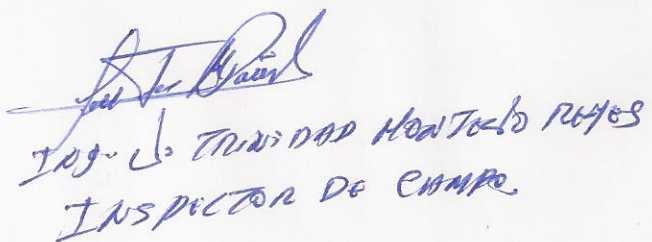 ING. J. TRINIDAD MONTEJO REYES
INSPECTOR DE CAMPO